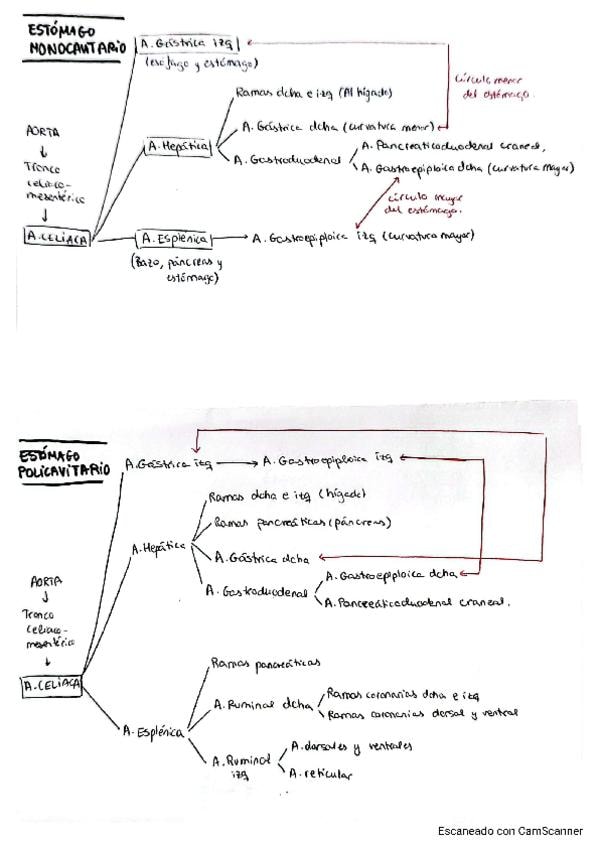 ESTÓMAGO
MONOCAVITARIO
A. Gástrica izq
(esófago y estómago)
círculo menor
del estómago.
Ramas dcha e izq (Al hígado)
AORTA
A. Hepática
A. Gástrica dcha (curvatura menor)
A. Pancreaticoduodenal craneal.
A. Gastroduodenal
A. Gastroepiploica dcha (curvatura mayor)
Tronco
celiaco-
mesentérico
círculo mayor
del estómago.
A. CELIACA
A. Esplénica
A. Gastroepiploica izq (curvatura mayor)
(Bazo, páncreas y
estómago)
ESTÓMAGO
POLICAVITARIO
A. Gástrica izq
A. Gastroepiploica izq
Ramas dcha e izq (hígado)
Ramas pancreáticas (páncreas)
A. Hepática
A. Gástrica dcha
A. Gastroepiploica dcha
A. Gastroduodenal
A. Pancreáticoduodenal craneal.
AORTA
Tronco
celiaco-
mesentérico
A. CELIACA
Ramas pancreáticas
A. Ruminal dcha
Ramas coronarias dcha e izq
Ramas coronarias dorsal y ventral
A. Esplénica
A. Ruminal
izq
A. dorsales y ventrales
A. reticular
Escaneado con CamScanner